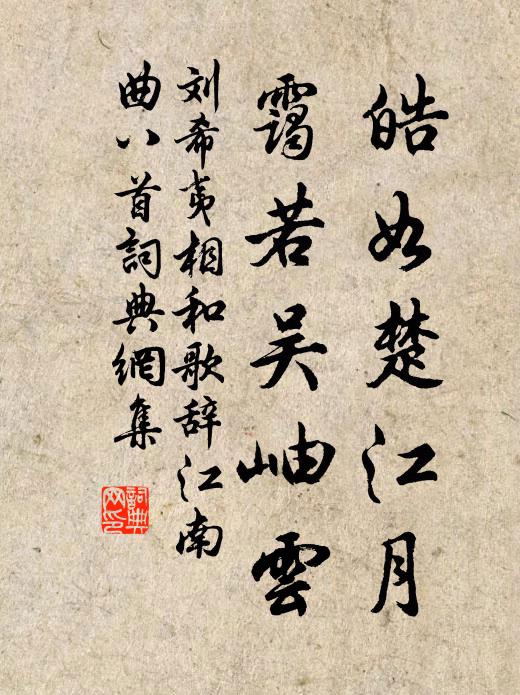 皓如楚江月
霭若吴岫雲
刘希夷相和歌辞江南
曲八首詞典網集
詞典网印